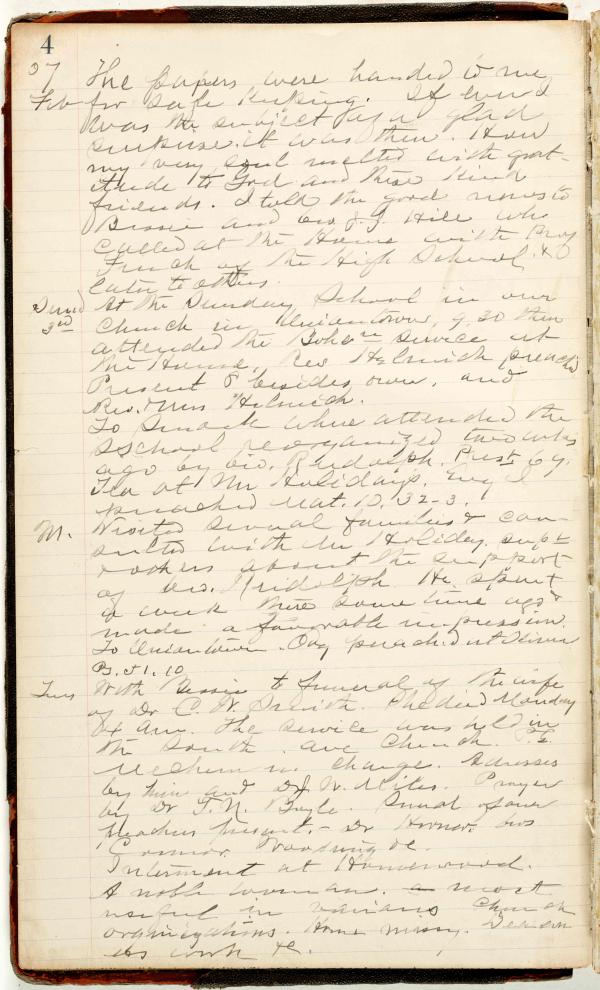 4
27 The papers were handed to me
Feb for safe keeping. If ever I
was the subject of a glad
surprise it was then. How
my very soul melted with grat-
itude to God and these kind
friends. I told the good news to
Bessie and bro J. J. Hill who
called at the Home with Prof
Finch of the High School, &
later to others.
3rd At the Sunday School in our
Church in Uniontown, 9.30 then
attended the service at
the Home, Rev Helmick preach'd
Present 8 besides own, and
Rev. & Mrs Helmick.
To Smock where attended the
S School reorganized two wks
ago by bro. Rudolph. Prest 69.
Tea at Mr Holidays. Evg I
preached Mat. 10. 32-3.
M. Visited several families & con-
sulted with Mr Holiday, supt
& others about the support
of bro. Rudolph. He spent
a week there some time ago &
made a favorable impression.
To Uniontown. Evg preach'd at
Ps. 51. 10
Tues With Bessie to funeral of the wife
of Dr C. W. Smith. She died Monday
am. The service was held in
the South ave Church.
in charge. Adresses
by him and Dr J. W. Miles. Prayer
by Dr T. N. Boyle. Several of our
present. - Dr bros
Conner, &c.
Interment at Homewood.
A noble woman, a most
useful in various Church
organizations. Home missy. Deacon
ess work &c.